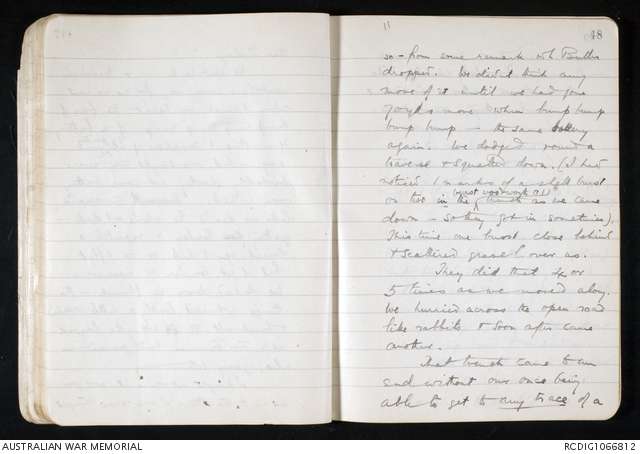 11
48
so - from some remark wh Butler
dropped. We didn't think any
more of it until we had gone
70 yds more when bump bump
bump bump - the same battery
again. We dodged round a
traverse & squatted down. (I had
noticed 1 marks of a shell burst
on two in the trench as we came
(burst woodwork &c)
down - so they got in sometimes).
This time one burst close behind
& scattered gravel over us.
They did that 4 or
5 times as we moved along.
We hurried across the open road
like rabbits & soon after came
another.
That trench came to an
end without our once being
able to get to any trace of a
AUSTRALIAN WAR MEMORIAL
RCDIG1066812